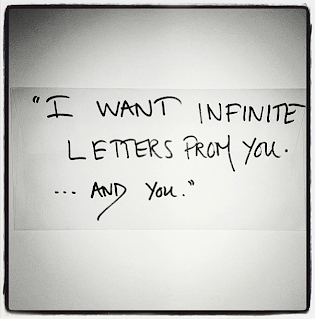 "I WANT INFINITE
LETTERS FROM YOU.
... AND YOU."